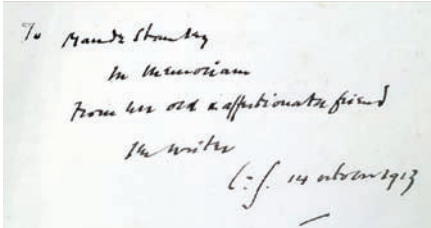 To Maude Stanley
In Memoriam
From her old & affectionate friend
The writer
14 1913